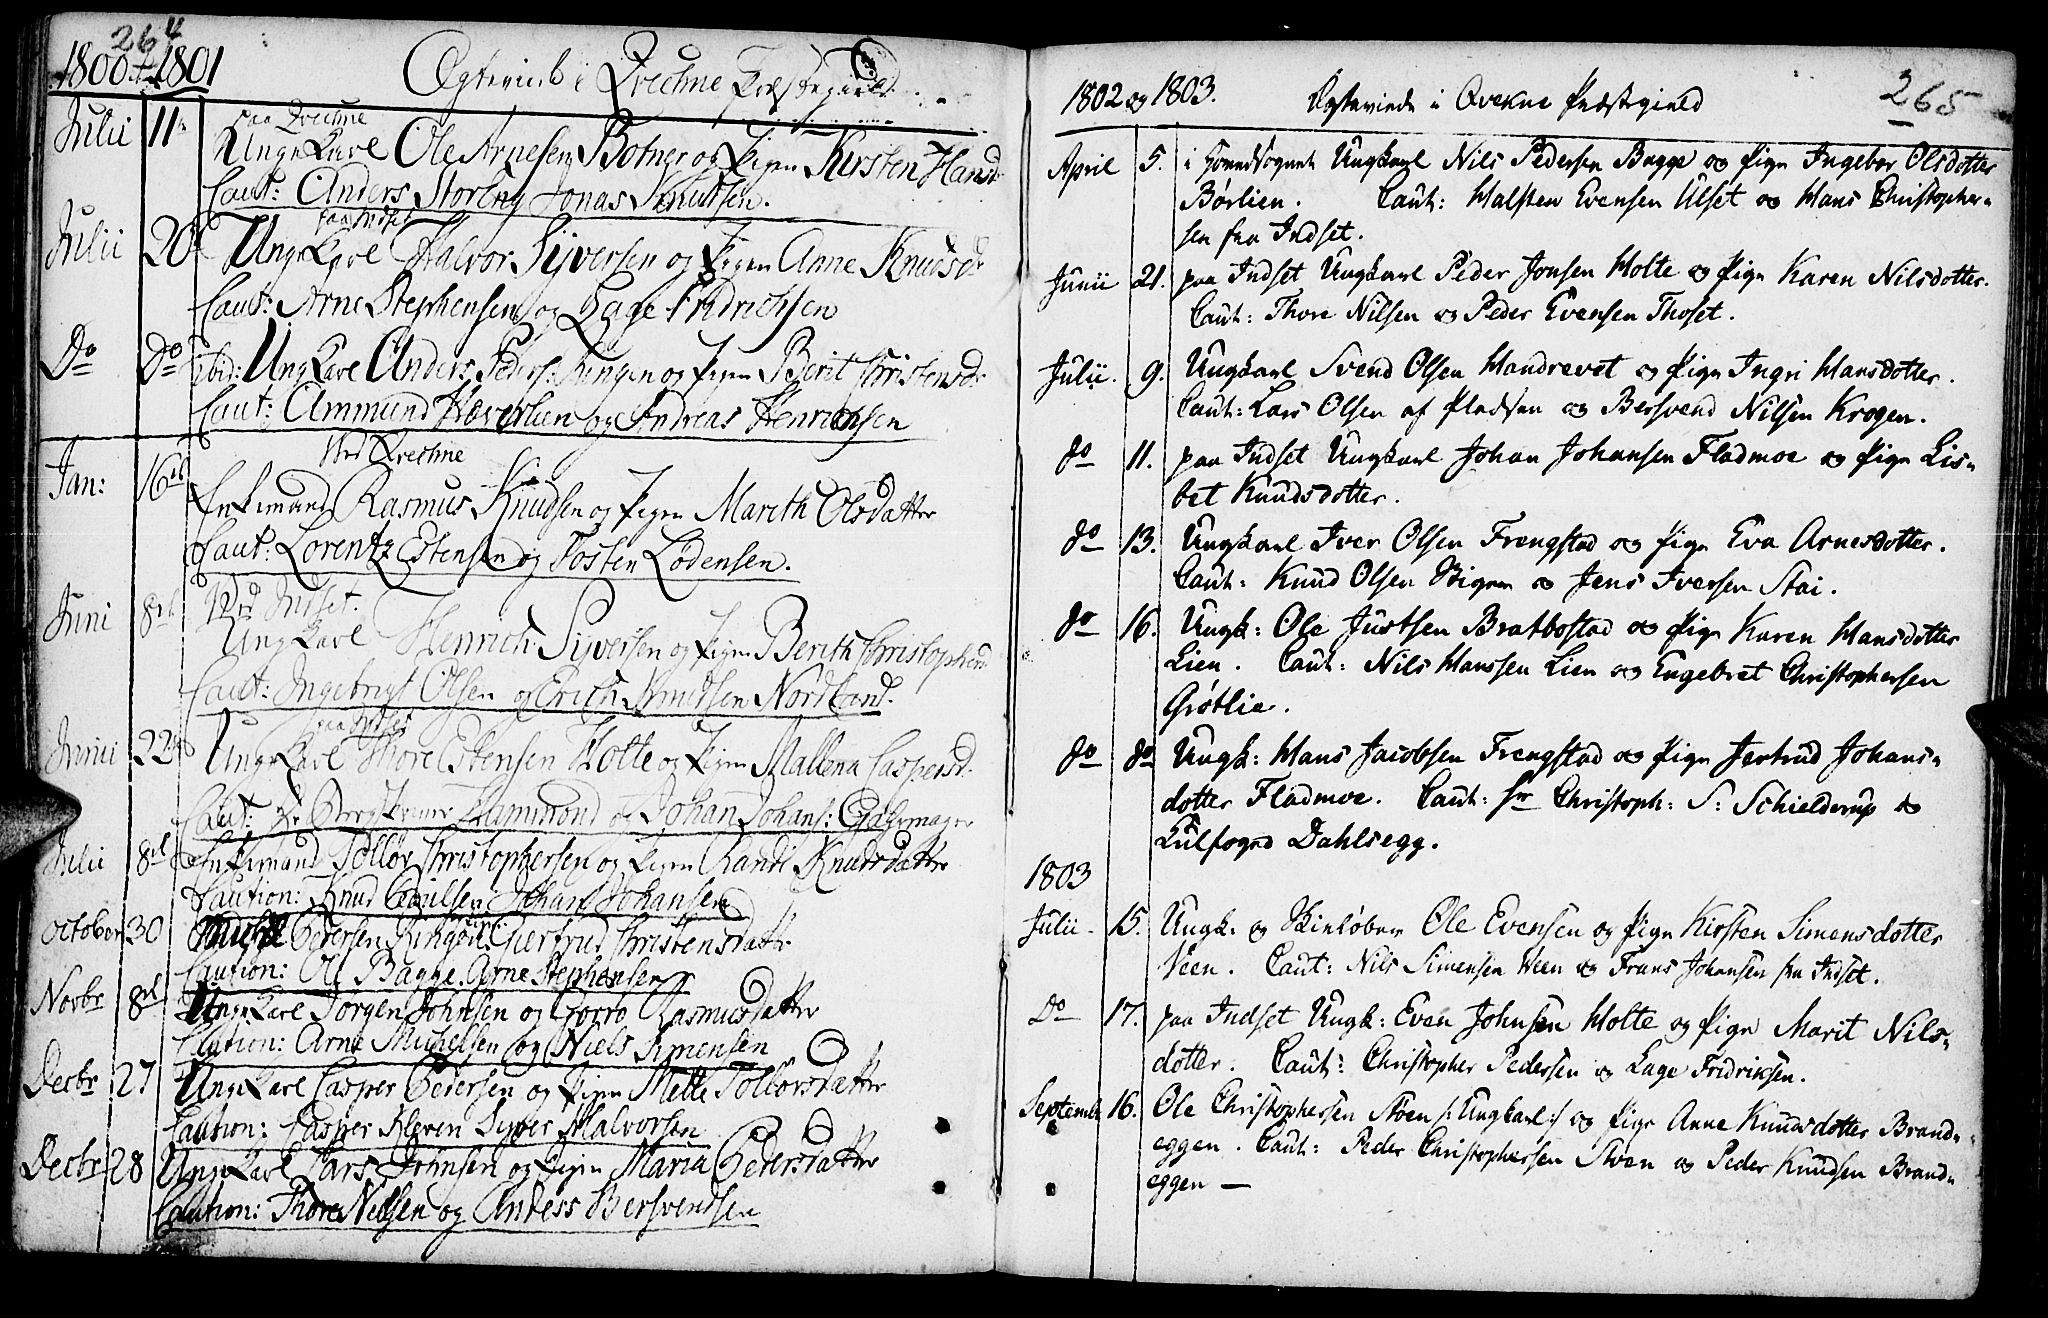 264
1800 & 1801 Ægteviede i Qvechne Præstegield
paa Qvechne
Julii 11te Unge Karl Ole Arnesen Botner og Pigen Kirsten Hansd:
Caut: Anders Storeng Jonas Knudsen.
paa Indset
Julii 20 Unge Karl Halvor Sijversen og Pigen Anne Knudsd:
Caut: Arne Stephensen og Lage Fridrichsen
Do Do ibid: Ung Karl Anders Peders: Ringen og Pigen Berit Christensd:
Caut: Ammund Haversen og Andreas Henrichsen
Ved Qvechne
Jan: 16de Enkemand Rasmus Knudsen og Pigen Marith Olsdatter
Caut: Lorentz Estensen og Tosten Lodensen.
Ved Indset.
Juni 8de Ung Karl Henrich Sijversen og Pigen Berith Christophersd:
Caut: Ingebrigt Olsen og Erich Knudsen Nordland.
paa Indset
Junii 22de Unge Karl Thore Estensen Holte og Pigen Mallena Caspersd.
Caut: Hr Bergskriver Hammond og Johan Johans: Gahrmager
Julii 8de Enkemand Tollov Christophersen og Pigen Randi Knudsdatter
Caution: Knud Poulsen Johan Johansen
October 30 Michel Pedersen Ringen Giertrud Christensdatter
Caution: Ole Bagge. Arne Stephensen
Novbr 8de Unge Karl Jörgen Johnsen og Goro Rasmusdatter
Caution: Arne Michelsen og Niels Simensen
Decbr 27 Unge Karl Casper Pedersen og Pigen Mette Tollovsdatter
Caution: Casper Kleven Syver Halvorsen
Decbr 28 Unge Karl Lars Johnsen og Pigen Maria Pedersdatter
Caution: Thore Nielsen og Anders Bersvendsen
1802 og 1803. Ægteviede i Qvekne Præstegield 265
April 5. i Hovedsognet Ungkarl Nils Pedersen Bagge og Pige Ingebor Olsdotter
Børlien. Caut: Halsten Evensen Ulset og Hans Christopher=
sen fra Indset.
Junii 21. paa Indset Ungkarl Peder Jonsen Holte og Pige Karen Nilsdotter.
Caut: Thore Nilsen og Peder Evensen Thoset.
Julii. 9. Ungkarl Svend Olsen Handrevet og Pige Ingri Hansdotter.
Caut: Lars Olsen af Pladsen og Bersvend Nilsen Krogen.
do 11. paa Indset Ungkarl Johan Johansen Fladmoe og Pige Lis=
bet Knudsdotter.
do 13. Ungkarl Iver Olsen Frengstad og Pige Eva Arnesdotter.
Caut: Knud Olsen Bigen og Jens Iversen Stai.
do 16. Ungk: Ole Justsen Bratbostad og Pige Karen Hansdotter
Lien. Caut: Nils Hanssen Lien og Engebret Christophersen
Grötlie.
do do Ungk: Hans Jacobsen Frengstad og Pige Jertrud Johans=
dotter Fladmoe. Caut: Hr Christoph: S: Schielderup og
Fulfoged Dahlsegg.
1803
Julii. 15. Ungk: og Skieløber Ole Evensen og Pige Kirsten Simensdotter
Veen. Caut: Nils Simensen Veen og Frans Johansen fra Indset.
Do 17. paa Indset Ungk: Even Johnsen Holte og Pige Marit Nils=
dotter. Caut: Christopher Pedersen og Lage Fridriksen.
Septembr 16. Ole Christophersen Støen /: Ungkarl :/ og Pige Anne Knudsdotter Brand=
eggen. Caut: Peder Christophersen Støen og Peder Knudsen Brand=
eggen —